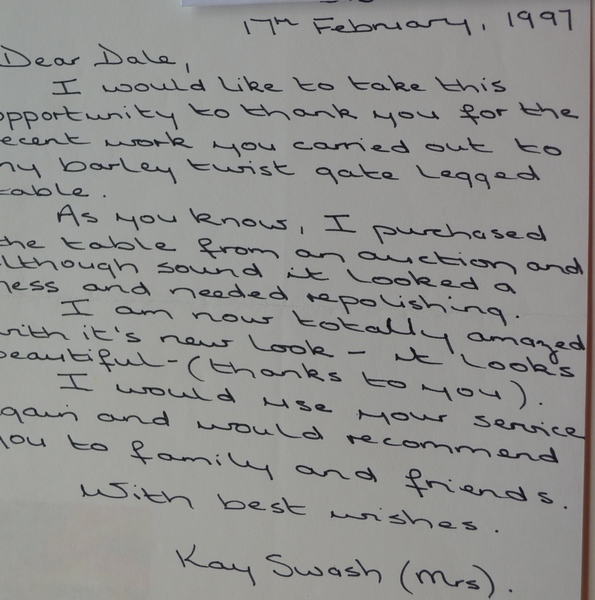 17th February, 1997
Dear Dale,
I would like to take this
opportunity to thank you for the
recent work you carried out to
my barley twist gate legged
table.
As you know, I purchased
the table from an auction and
although sound it looked a
mess and needed repolishing.
I am now totally amazed
with it's new look - it looks
beautiful - (thanks to you).
I would use your service
again and would recommend
you to family and friends.
With best wishes.
Kay Swash (Mrs).